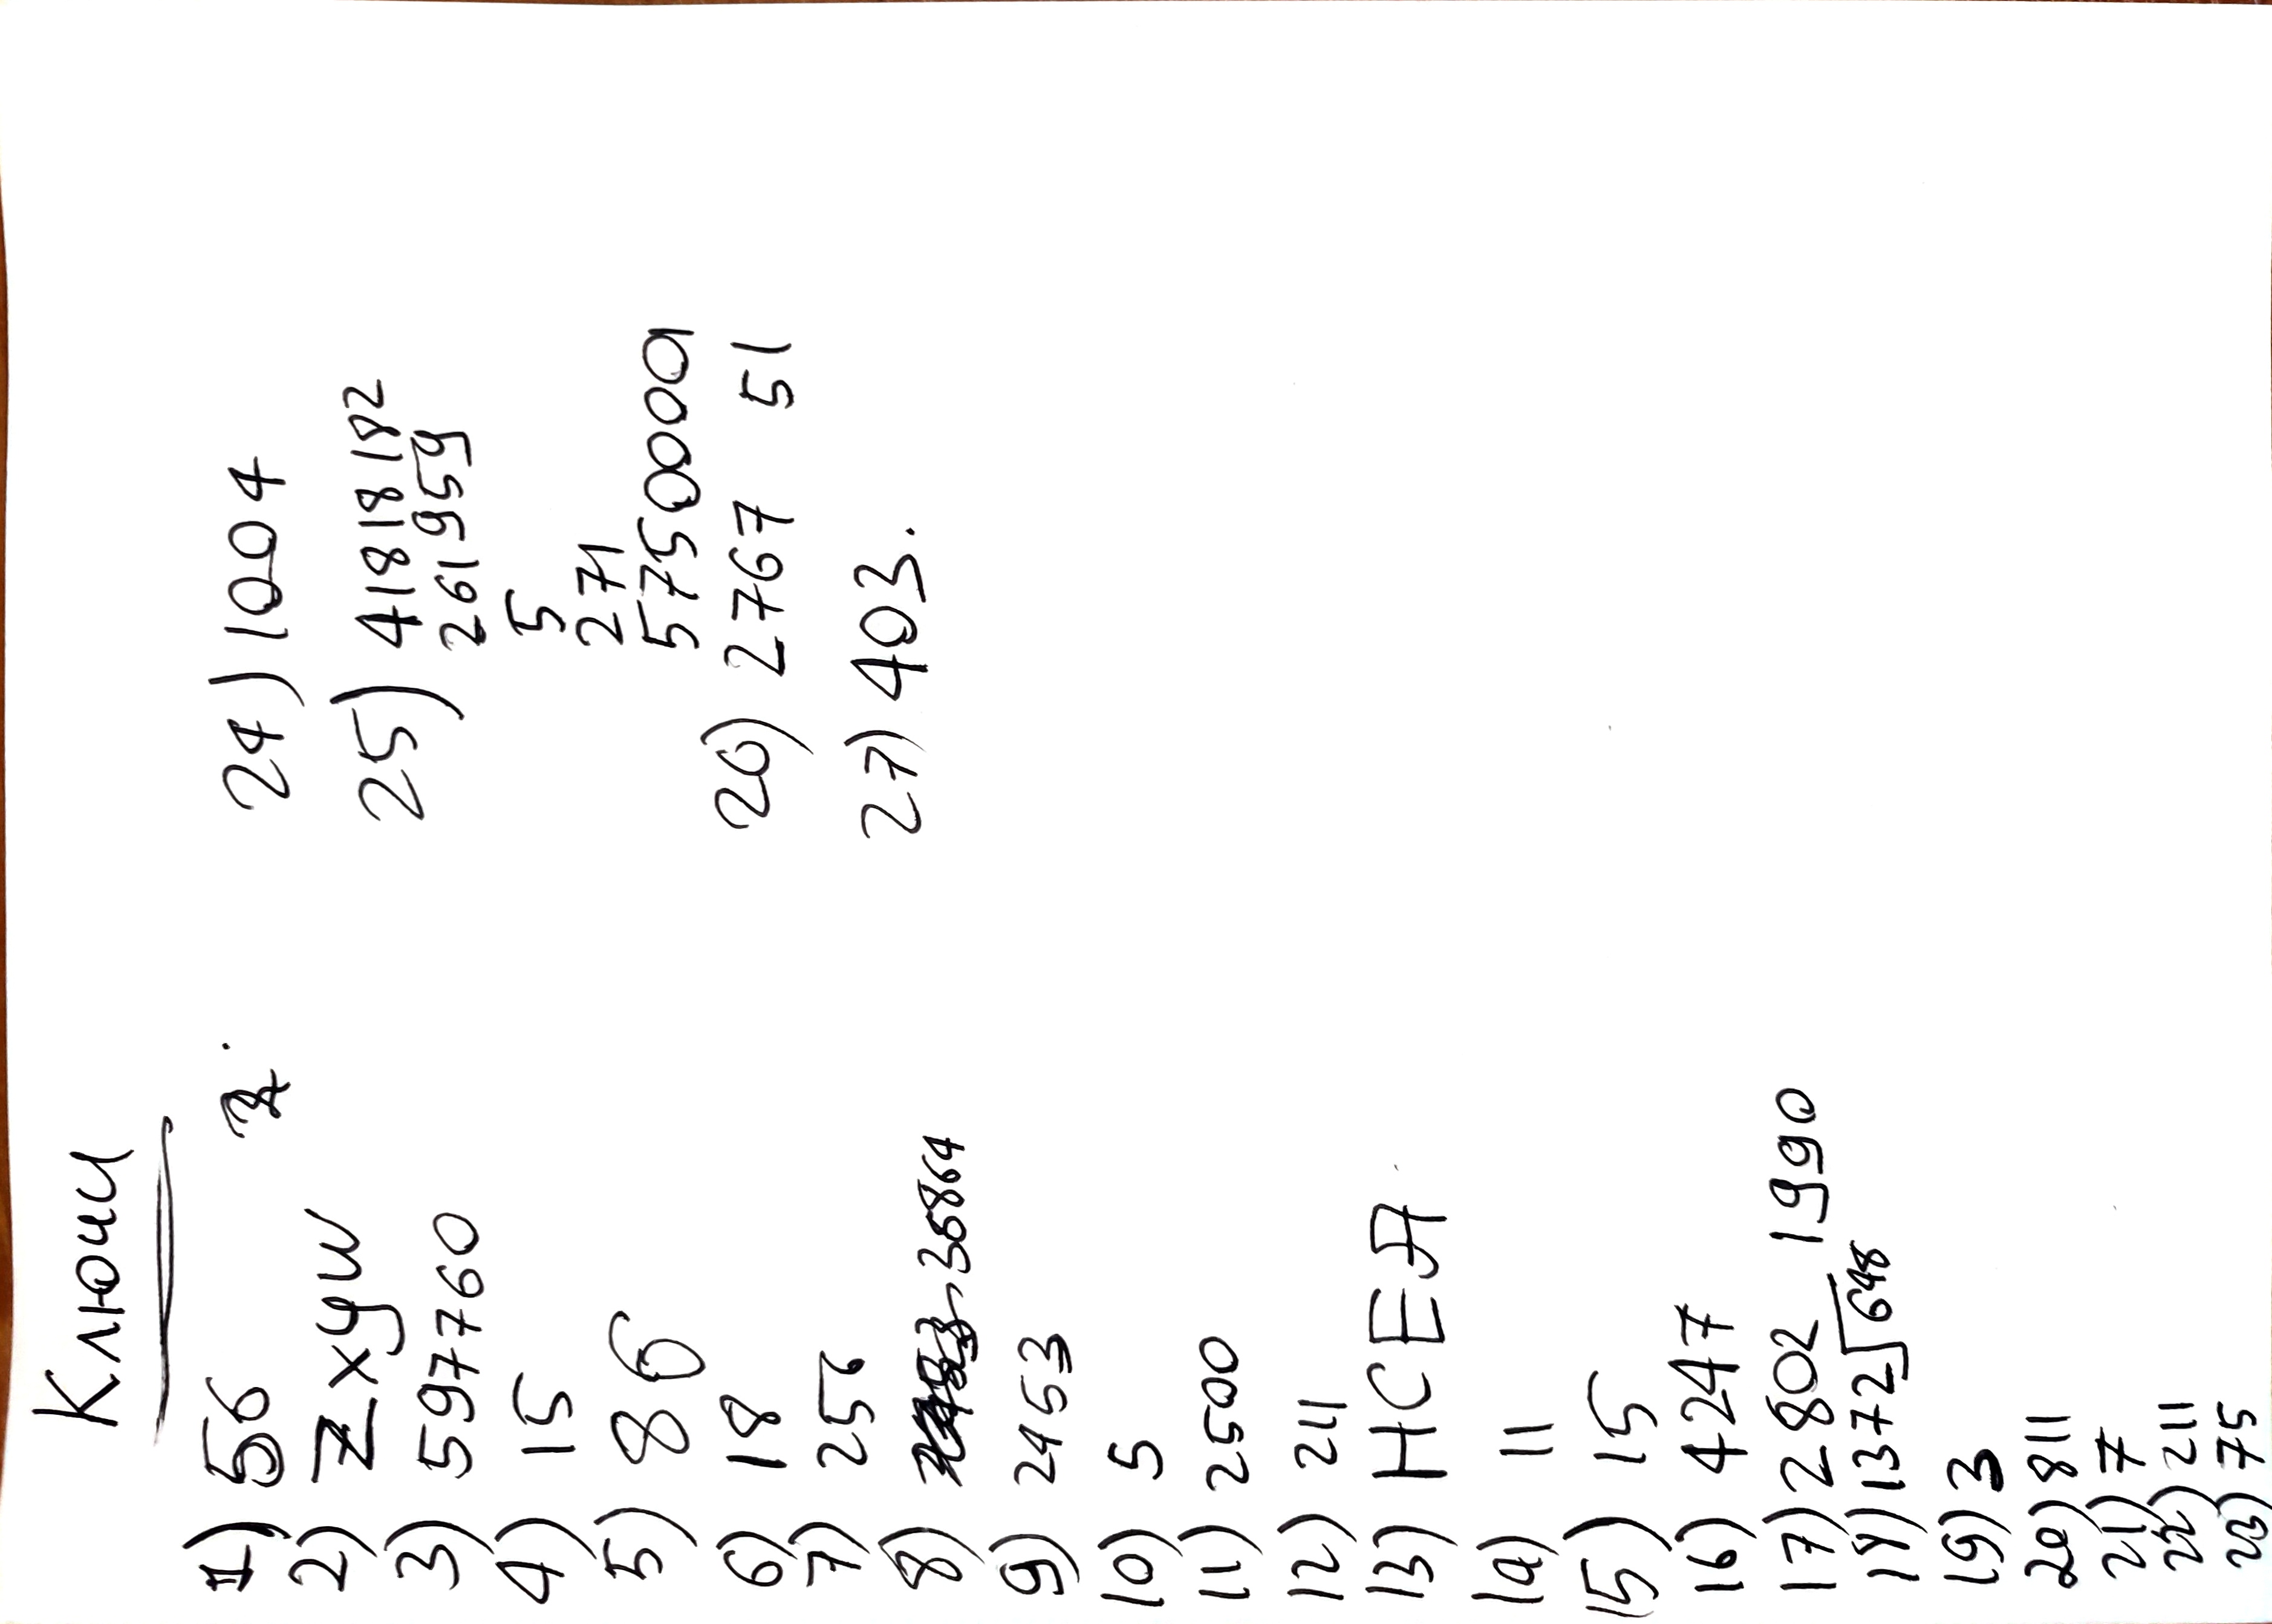 Ключи
1) 56
2) zxyw
3) 597760
4) 15
5) 86
6) 18
7) 256
8) 35864
9) 2453
10) 5
11) 2500
12) 211
13) НСЕЯ
14) 11
15) 15
16) 4247
17) 2802 1990
18) 1372 648
19) 3
20) 811
21) 7
22) 211
23) 75
24) 1004
25) 41818182
261959
5
271
57500001
26) 2767 51
27) 403.